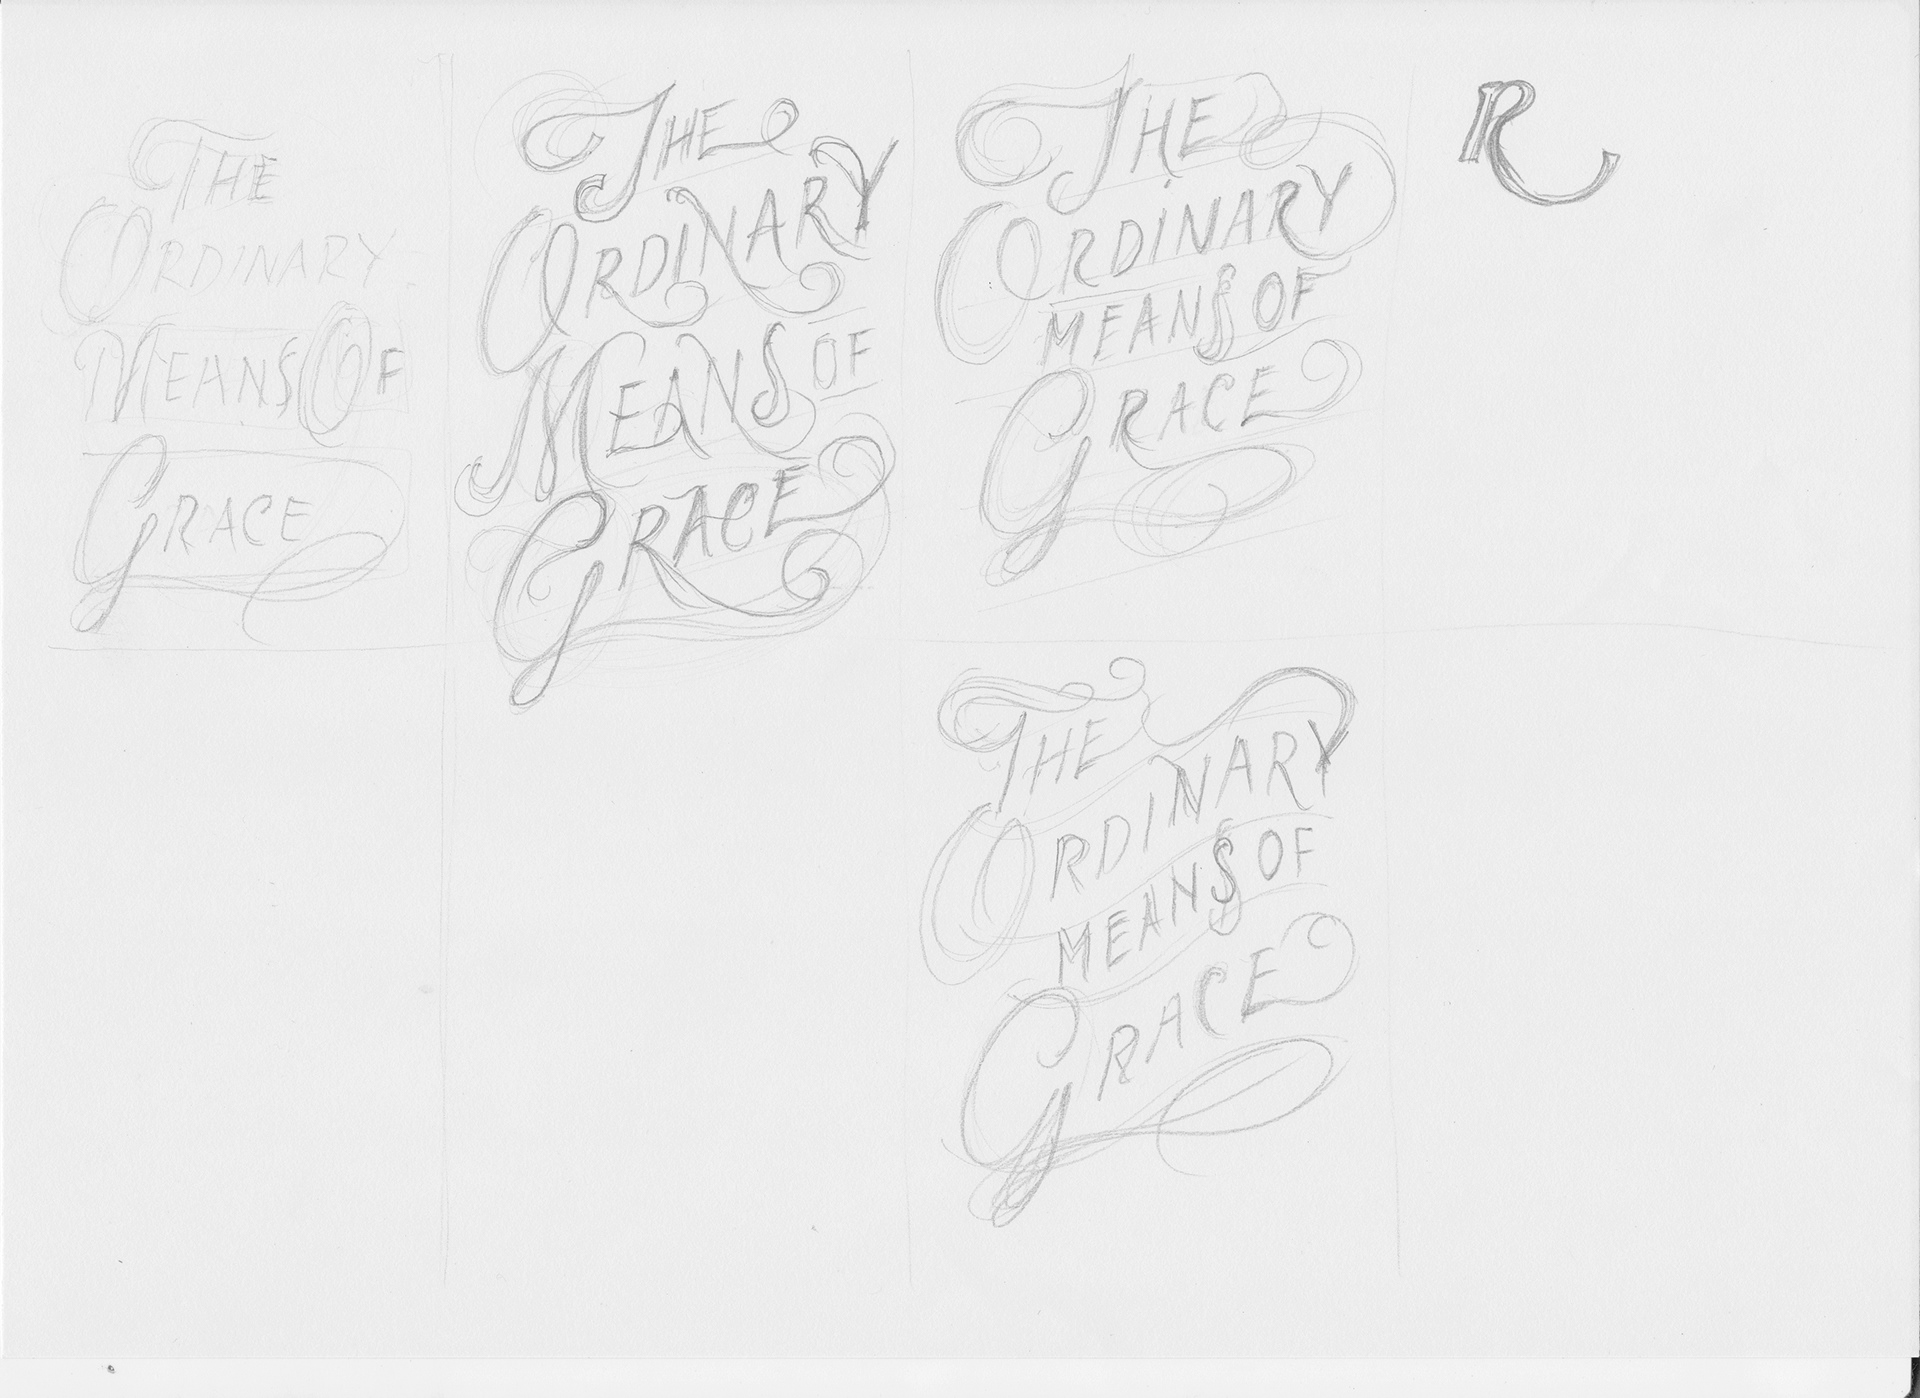 The
Ordinary
Means Of
Grace
The
Ordinary
Means of
Grace
The
Ordinary
Means of
Grace
R
The
Ordinary
Means of
Grace